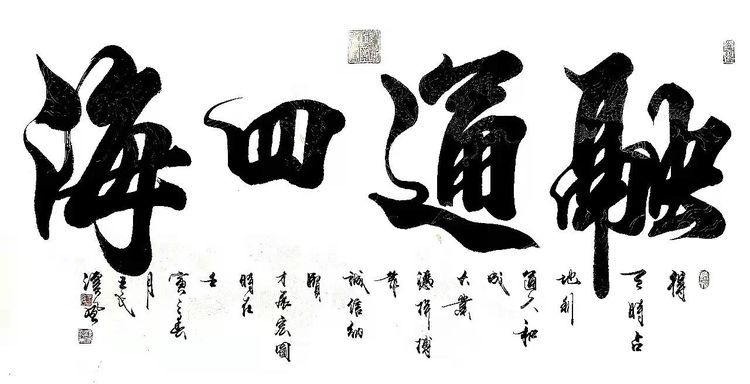 融通四海
得
天時占
地利
通人和
成
大業
拼搏
誠信納
賢
才展宏圖
時在
壬
寅之春
月
王氏